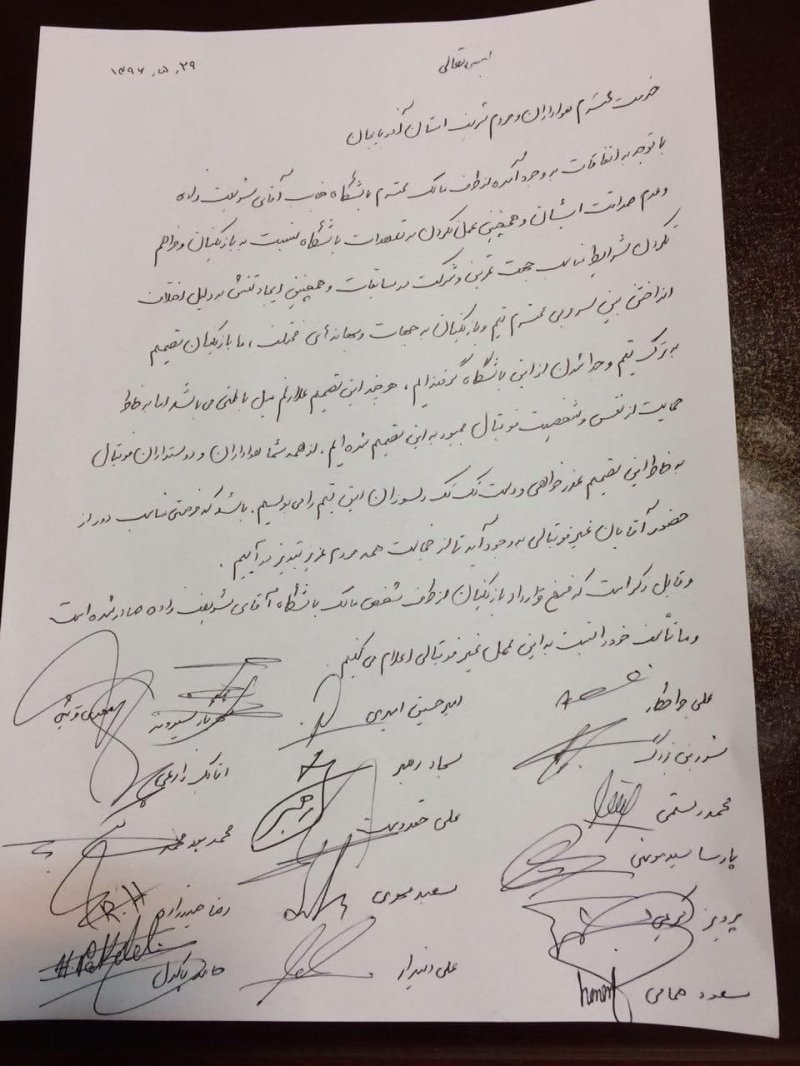 بسمه تعالی
۱۳۹۶٫۵٫۲۹
خدمت محترم هواداران و مردم شریف استان آذربایجان
با توجه به اتفاقات به وجود آمده از طرف مالک محترم باشگاه جناب آقای شریف زاده
و عدم صداقت ایشان و همچنین عمل نکردن به تعهدات باشگاه نسبت به بازیکنان و فراهم
نکردن شرایط مناسب جهت تمرین و شرکت در مسابقات و همچنین ایجاد تنش به دلیل اختلاف
انداختن بین سرمربی محترم تیم و بازیکنان به جهات و بهانه‌های مختلف ، ما بازیکنان تصمیم
به ترک تیم و جدا شدن از این باشگاه گرفته‌ایم . هر چند این تصمیم علارغم میل باطنی می باشد اما به خاطر
حمایت از نفس و شخصیت فوتبال مجبور به این تصمیم شده ایم . از همه شما هواداران و دوستداران فوتبال
به خاطر این تصمیم عذرخواهی و دست تک تک دلسوزان این تیم را می بوسیم . باشد که فرصتی مناسب دور از
حضور آقایان غیر فوتبالی به وجود آید تا از خجالت همه مردم عزیز تبریز در آییم .
و قابل ذکر است که فسخ قرارداد بازیکنان از طرف شخص مالک باشگاه آقای شریف زاده صادر شده است
و ما تأسف خود را نسبت به این عمل غیر فوتبالی اعلام می کنیم .
علی جا امیرحسین امیری مهدی
بزرگی سجاد رهبر
محمد رستمی علی محمد
رهبر
پارسا سعید رضا حیدرزاده
R.H
پرویز کریمی علی دیندار حامد پاکدل
#Pakdel
مسعود همامی